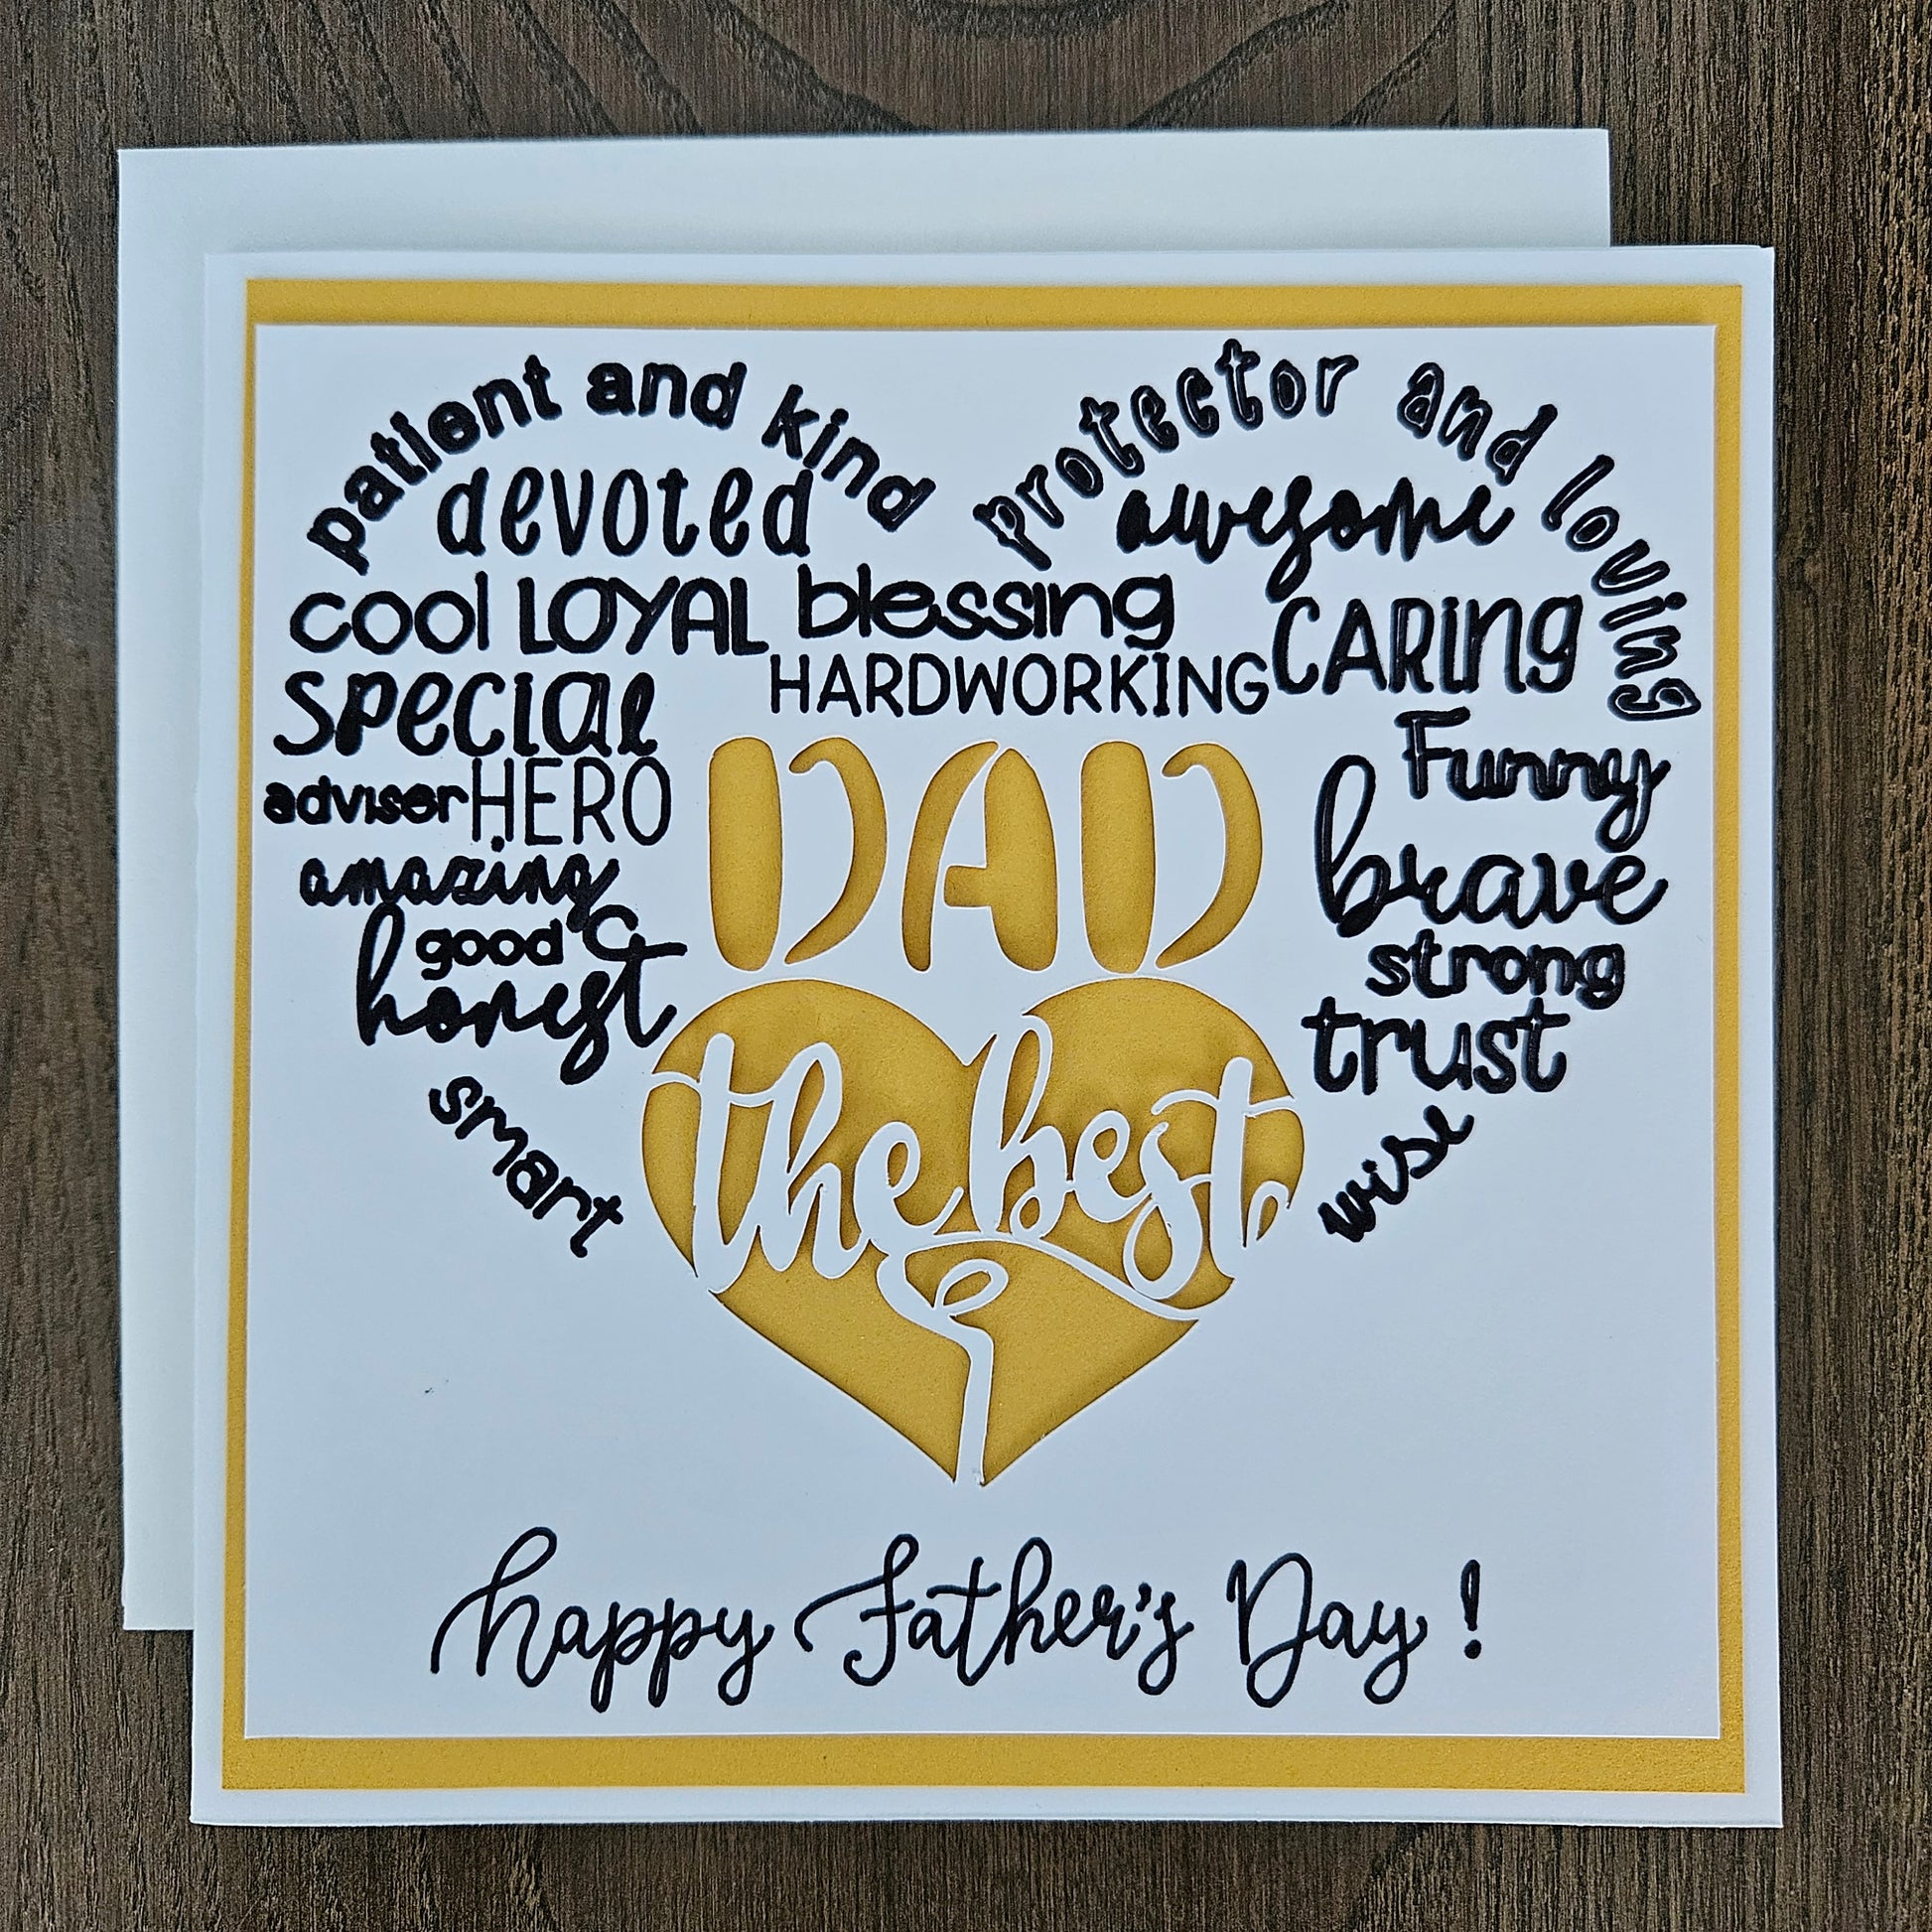 patient and kind
protector and loving
devoted
awesome
cool LOYAL blessing
CARING
HARDWORKING
special
adviser HERO
DAD
Funny
amazing
brave
good &
honest
strong
trust
the best
smart
wise
happy Father's Day !